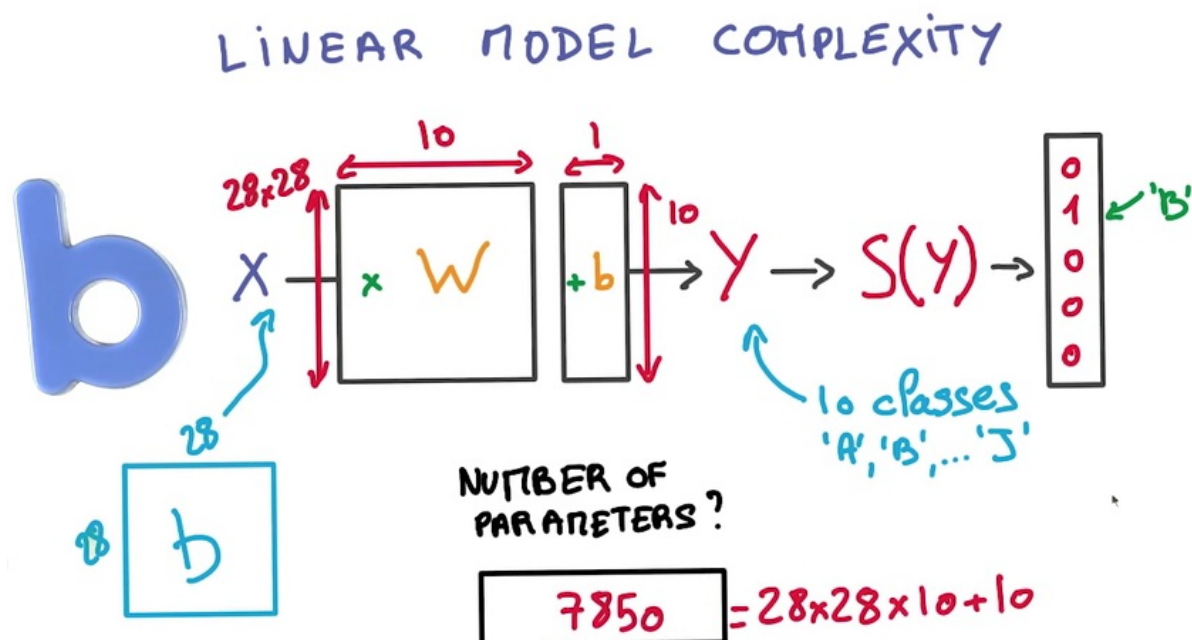 LINEAR MODEL COMPLEXITY
10
1
28x28
X
x W
+ b
10
Y → S(Y) →
0
1
0
0
0
'B'
b
28
28
b
10 classes
'A', 'B', ... 'J'
NUMBER OF
PARAMETERS?
7850 = 28x28x10+10